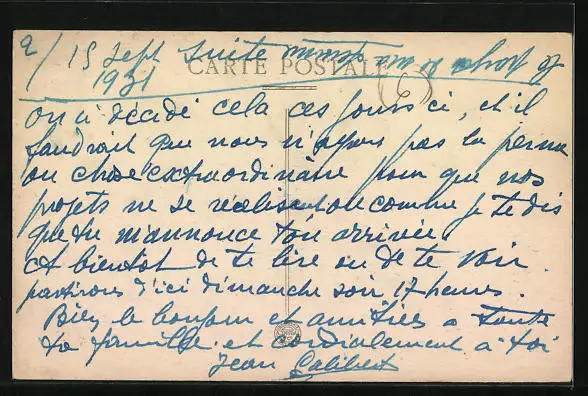 2/ 15 Sept Suite
1931
CARTE POSTALE
on a décidé cela ces jours ci, et il
faudrait que nous n'ayons pas la perme
ou chose extraordinaire pour que nos
projets ne se réalisent ou comme je te dis
que tu m'annonce ton arrivée
et bientôt de te lire ou de te voir.
partirons d'ici dimanche soir 17 heures.
Bien le bonjour et amitiés a toute
ta famille. et cordialement à toi
Jean Calibert